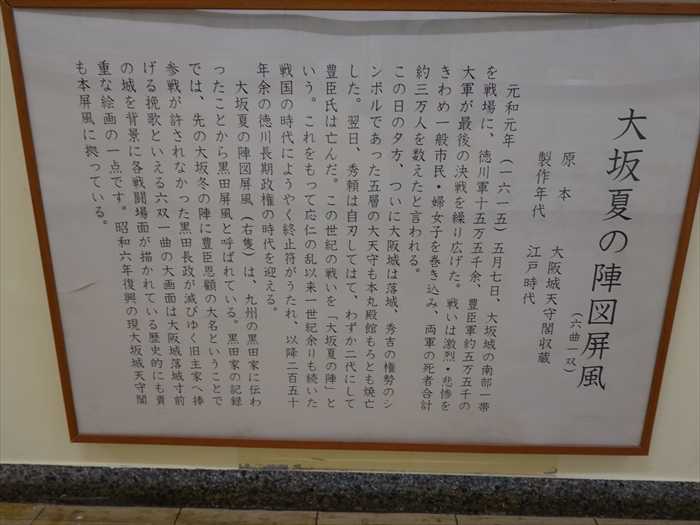 大坂夏の陣図屏風
（六曲一双）
原本　大阪城天守閣収蔵
製作年代　江戸時代
元和元年（一六一五）五月七日、大坂城の南部一帯
を戦場に、徳川軍十五万五千余、豊臣軍約五万五千の
大軍が最後の決戦を繰り広げた。戦いは激烈・悲惨を
きわめ一般市民・婦女子を巻き込み、両軍の死者合計
約三万人を数えたと言われる。
この日の夕方、ついに大阪城は落城、秀吉の権勢のシ
ンボルであった五層の大天守も本丸殿館もろとも焼亡
した。翌日、秀頼は自刃してはて、わずか二代にして
豊臣氏は亡んだ。この世紀の戦いを「大坂夏の陣」と
いう。これをもって応仁の乱以来一世紀余りも続いた
戦国の時代にようやく終止符がうたれ、以降二百五十
年余の徳川長期政権の時代を迎える。
大坂夏の陣図屏風（右隻）は、九州の黒田家に伝わ
ったことから黒田屏風と呼ばれている。黒田家の記録
では、先の大坂冬の陣に豊臣恩顧の大名ということで
参戦が許されなかった黒田長政が滅びゆく旧主家へ捧
げる挽歌といえる六双一曲の大画面は大阪城落城寸前
の城を背景に各戦闘場面が描かれている歴史的にも貴
重な絵画の一点です。昭和六年復興の現大坂城天守閣
も本屏風に拠っている。